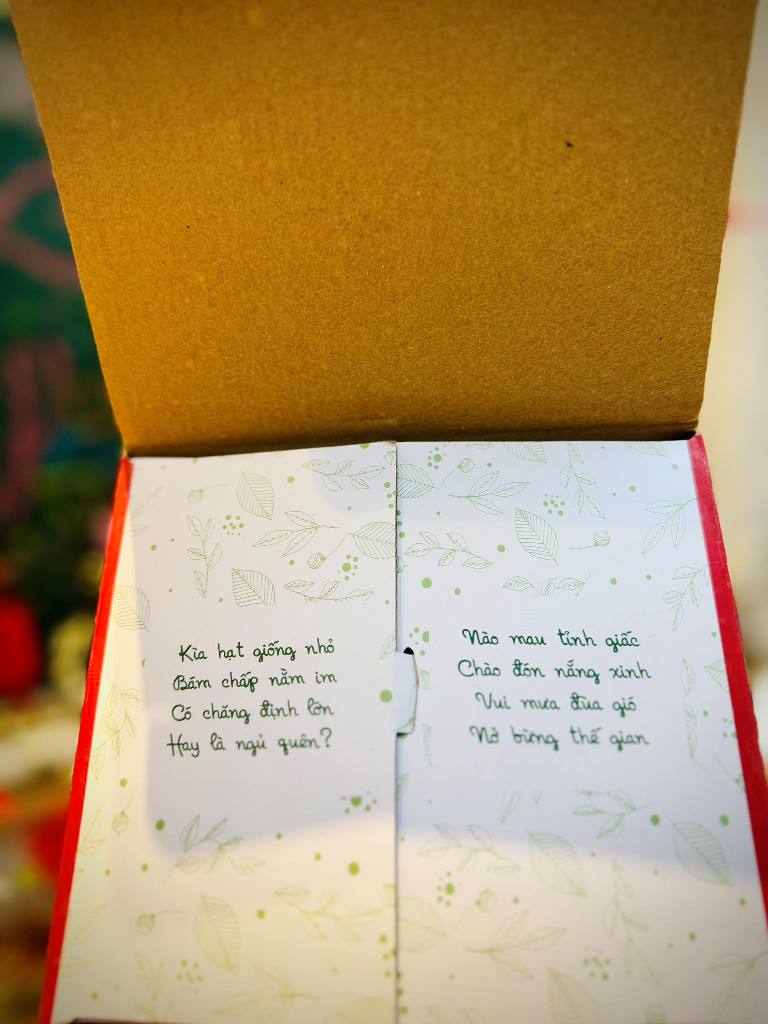 Kìa hạt giống nhỏ
Bám chấp nằm im
Có chăng định lớn
Hay là ngủ quên?
Nào mau tỉnh giấc
Chào đón nắng xinh
Vui mưa đùa gió
Nở bừng thế gian